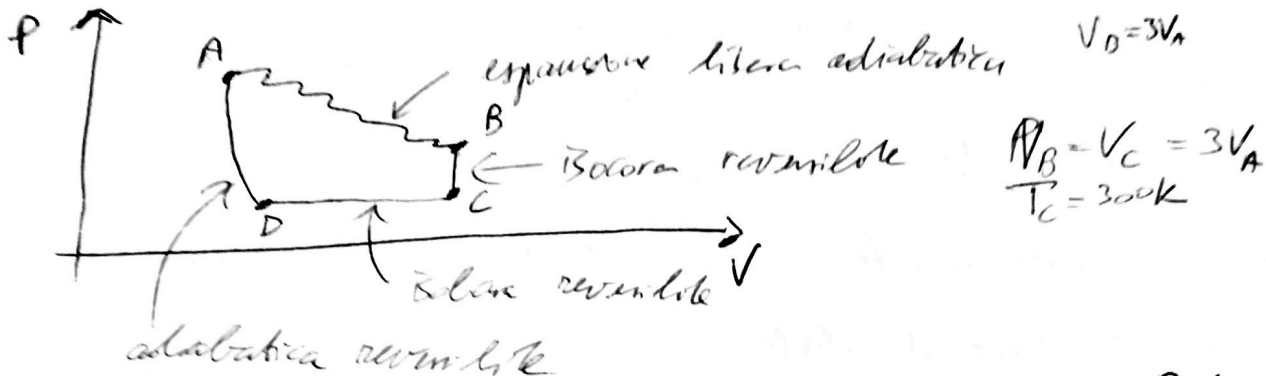 P
A
espansione libera adiabatica
V_B = 3V_A
B
isocora reversibile
V_B = V_C = 3V_A
T_C = 300K
C
D
V
isobara reversibile
adiabatica reversibile